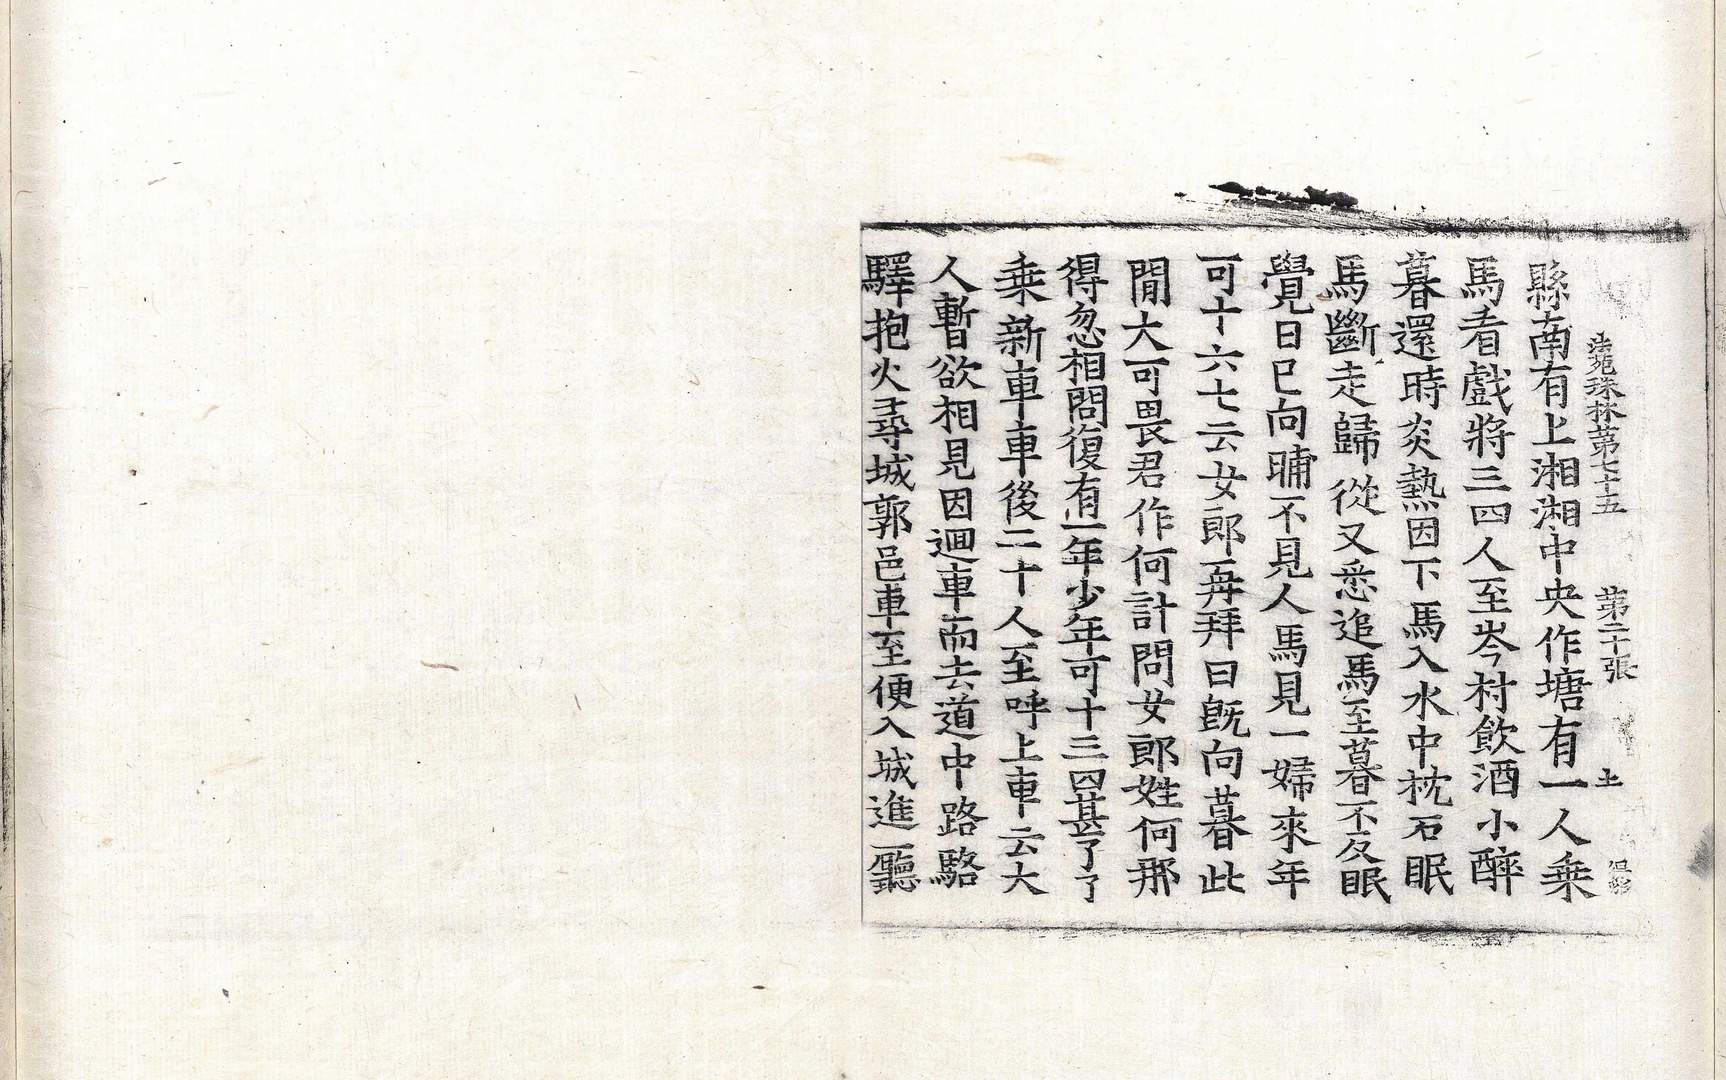 法苑珠林第七十五 第二十張 土
縣南有上湘湘中央作塘有一人乗
馬看戲將三四人至岑村飲酒小醉
暮還時炎熱因下馬入水中枕石眠
馬斷走歸從又悉追馬至暮不反眠
覺日已向晡不見人馬見一婦來年
可十六七云女郎再拜日旣向暮此
閒大可畏君作何計問女郎姓何那
得忽相問復有一年少年可十三四甚了了
乗新車車後二十人至呼上車云大
人暫欲相見因迴車而去道中路駱
驛抱火尋城郭邑車至便入城進廳